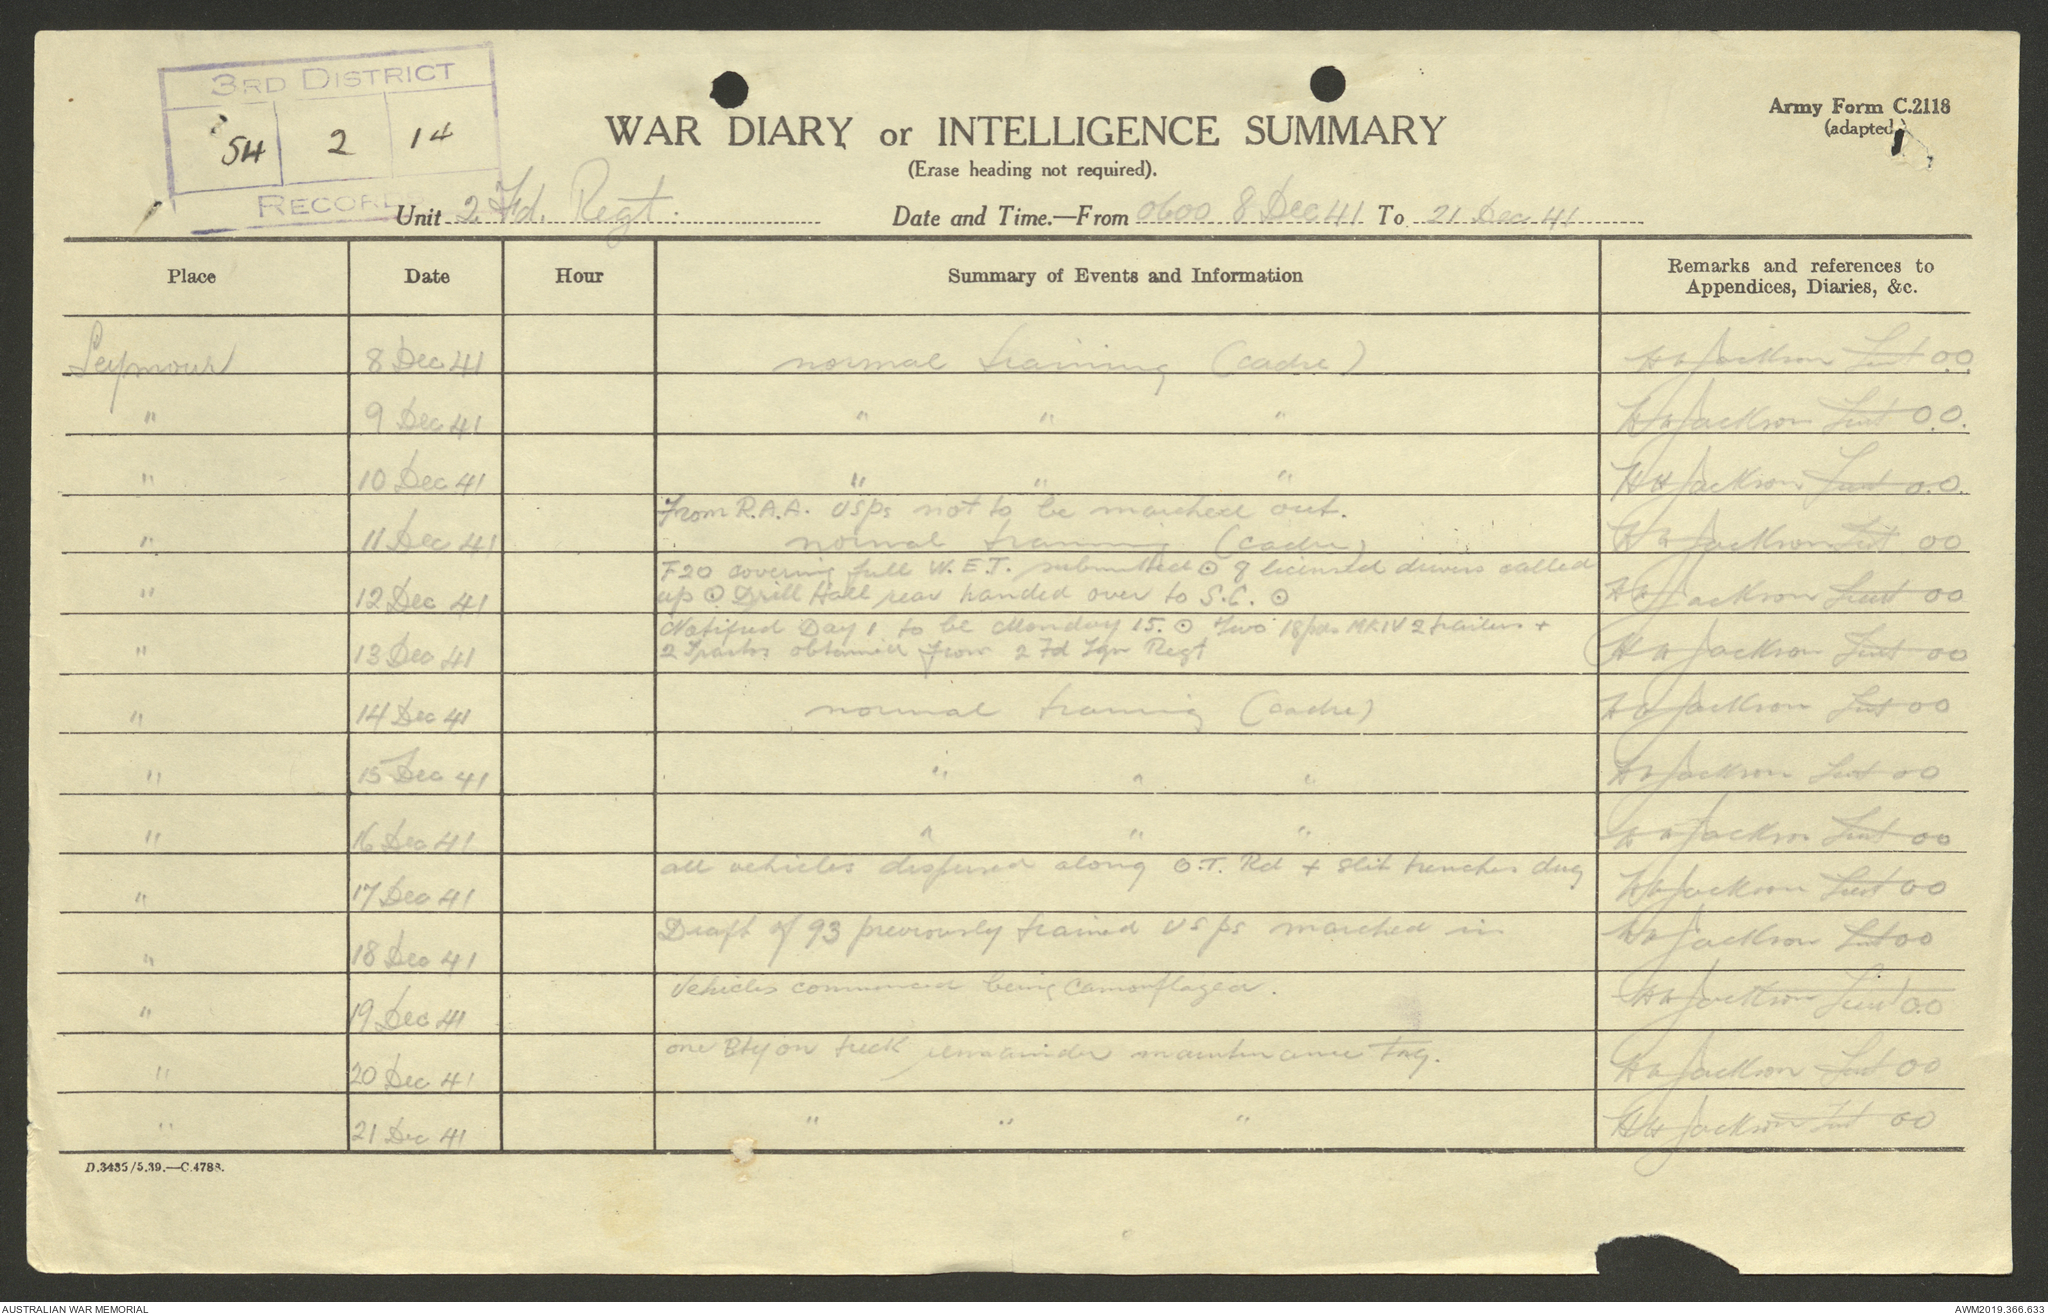 3RD DISTRICT
54 2 14
RECORDS
WAR DIARY or INTELLIGENCE SUMMARY
(Erase heading not required).
Army Form C.2118
(adapted)
Unit 2 Fd. Regt. Date and Time.—From 0600 8 Dec 41 To 21 Dec 41
Place Date Hour Summary of Events and Information Remarks and references to Appendices, Diaries, &c.
Seymour 8 Dec 41 normal training (cadre) Jackson Lieut OO
" 9 Dec 41 " " " Jackson Lieut O.O.
" 10 Dec 41 " " " Jackson Lieut O.O.
From R.A.A. USps not to be marched out.
" 11 Dec 41 normal training (cadre) Jackson Lieut OO
F20 covering full W.E.T. submitted ⊙ 8 licensed drivers called
" 12 Dec 41 up ⊙ Drill Hall rear handed over to S.C. ⊙ Jackson Lieut OO
Notified Day 1 to be Monday 15. ⊙ Two 18pdrs MKIV 2 trailers +
" 13 Dec 41 2 obtained from 2 Fd Regt Jackson Lieut OO
" 14 Dec 41 normal training (cadre) Jackson Lieut OO
" 15 Dec 41 " " " Jackson Lieut OO
" 16 Dec 41 " " " Jackson Lieut OO
all vehicles dispersed along O.T. Rd + slit trenches dug
" 17 Dec 41 Jackson Lieut OO
Draft of 93 previously trained USps marched in
" 18 Dec 41 Jackson Lieut OO
Vehicles commenced being camouflaged.
" 19 Dec 41 Jackson Lieut O.O
one Bty on trek remainder maintenance Tng.
" 20 Dec 41 Jackson Lieut OO
" 21 Dec 41 " " " Jackson Lieut OO
D.3435/5.39.—C.4788.
AUSTRALIAN WAR MEMORIAL AWM2019.366.633